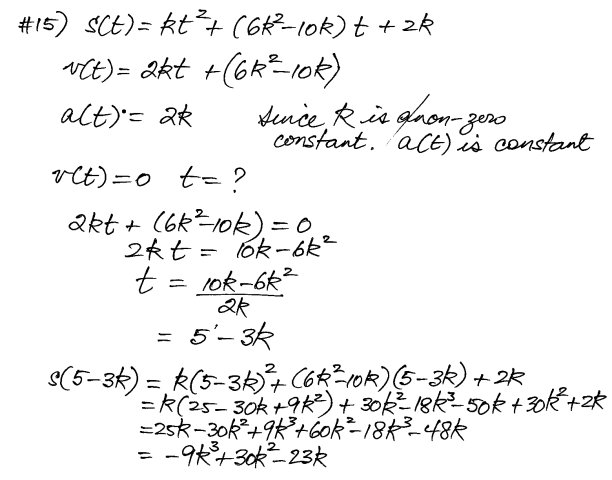 #15) s(t) = kt² + (6k²-10k) t + 2k
v(t) = 2kt + (6k²-10k)
a(t) = 2k since k is a non-zero
constant. a(t) is constant
v(t) = 0 t = ?
2kt + (6k²-10k) = 0
2kt = 10k-6k²
t = 10k-6k²
2k
= 5-3k
s(5-3k) = k(5-3k)² + (6k²-10k)(5-3k) + 2k
= k(25-30k+9k²) + 30k²-18k³-50k+30k²+2k
=25k-30k²+9k³+60k²-18k³-48k
= -9k³+30k²-23k